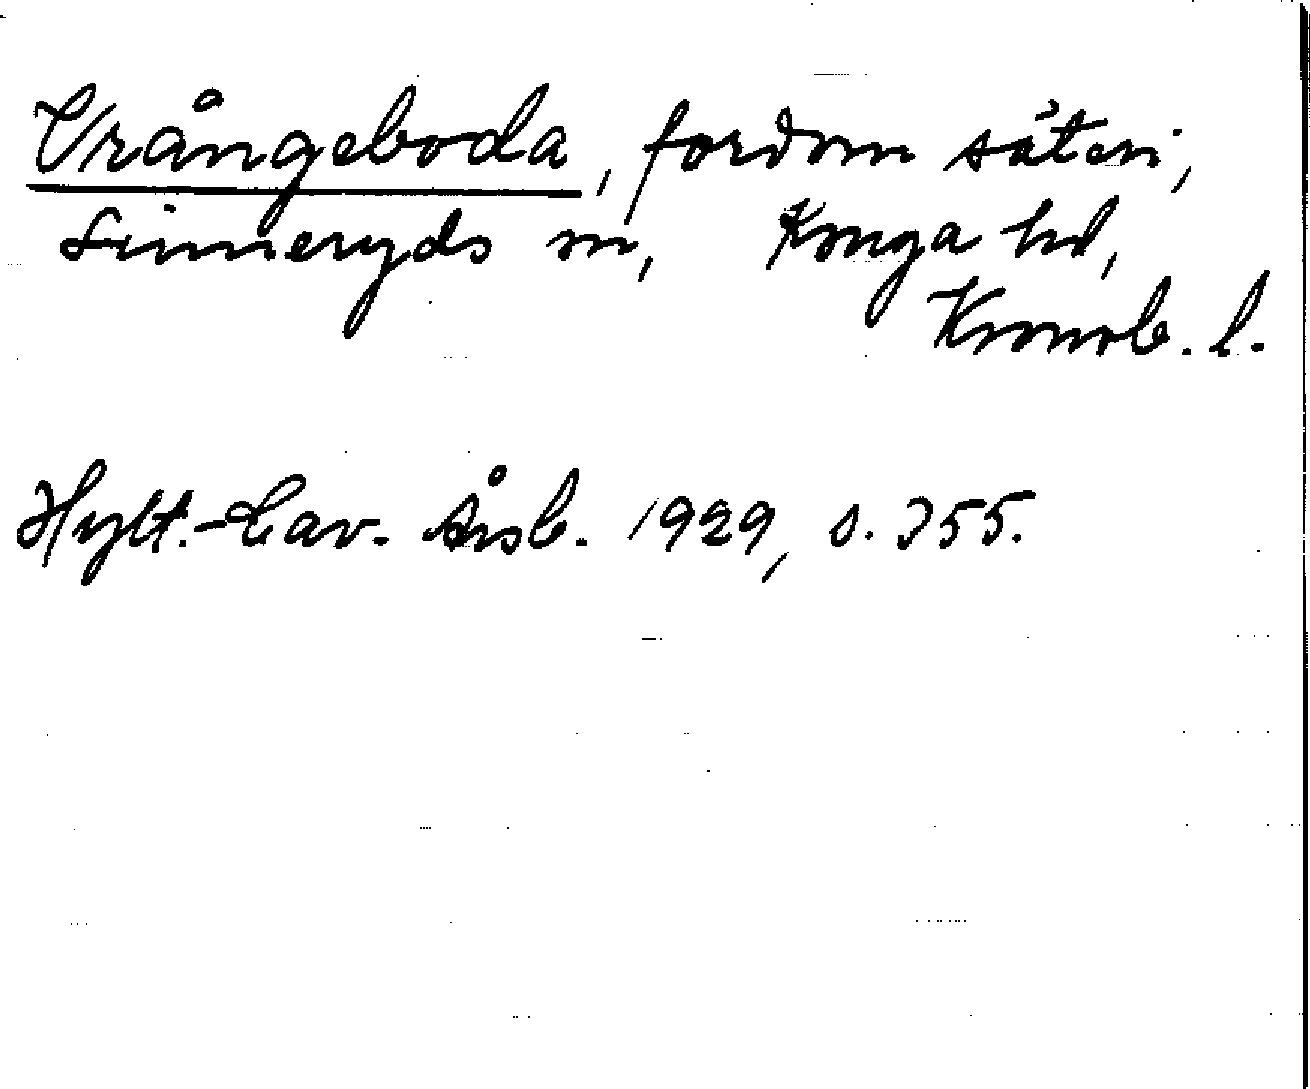 Vrångeboda, fordom säteri,
Linneryds sn, Konga hd,
Kronob. l.
Hylt.-Cav. Årsb. 1929, s. 355.